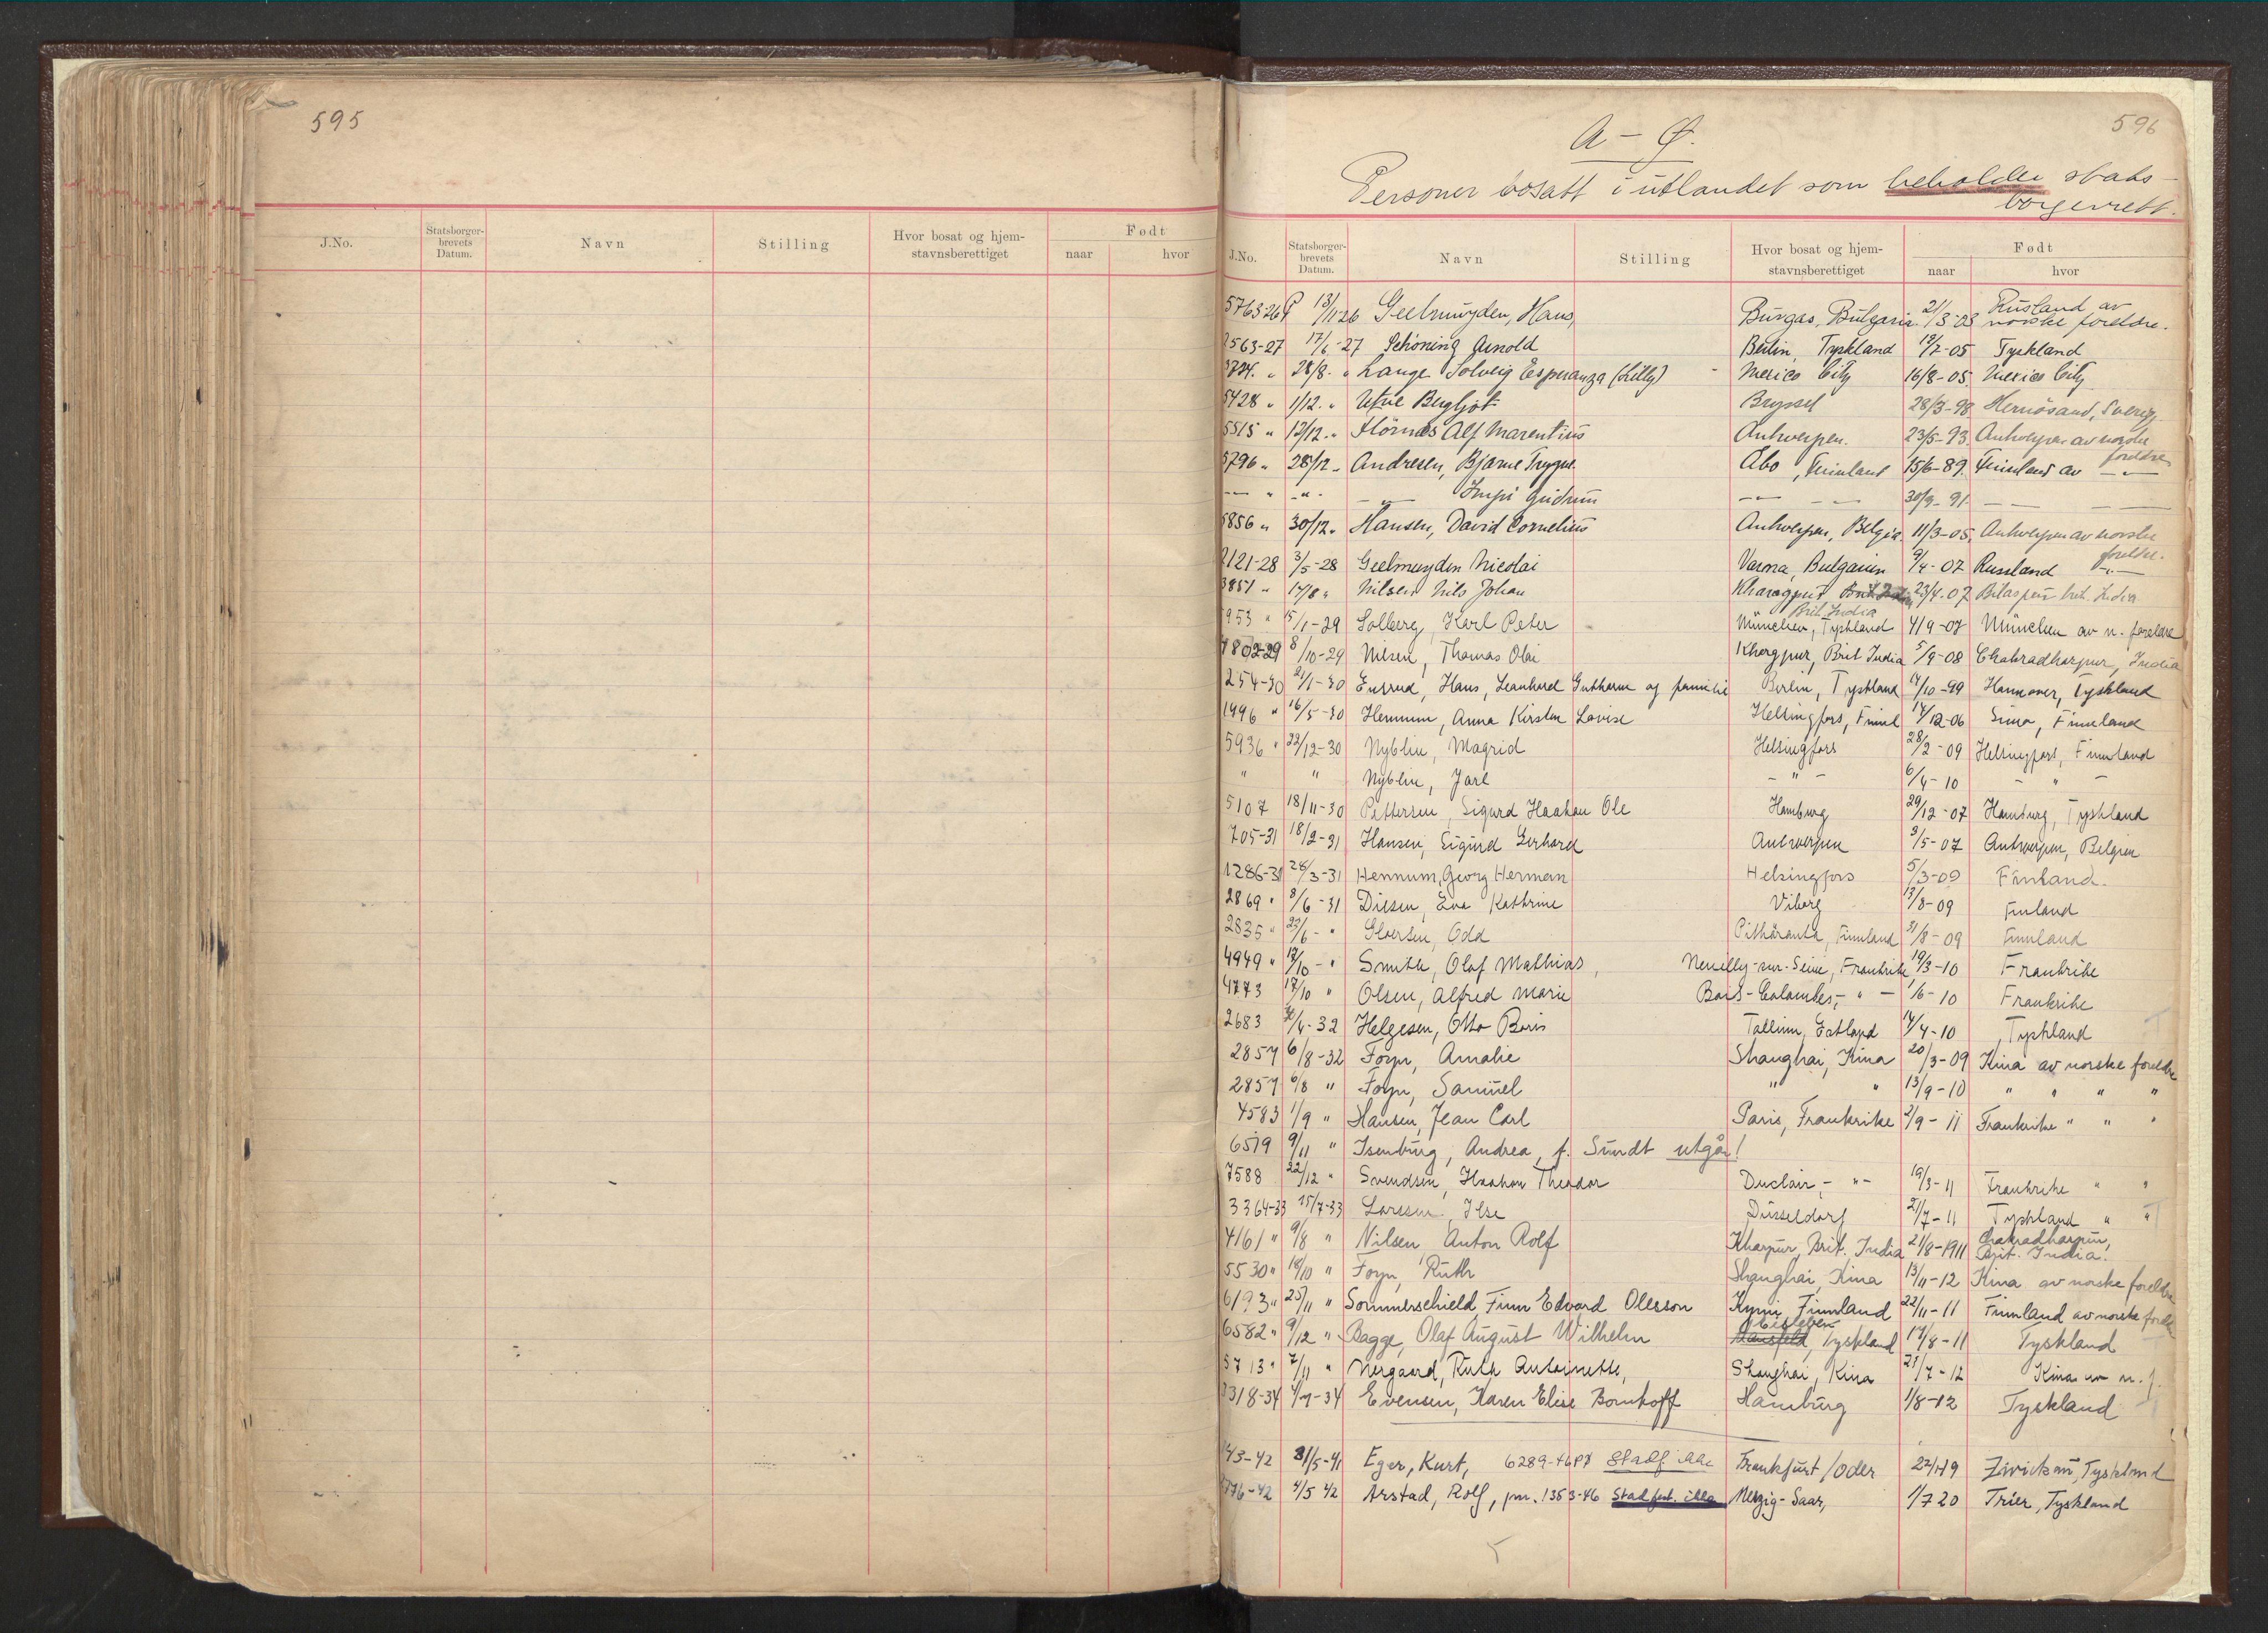 595
J.No.
Statsborger-
brevets
Datum.
Navn
Stilling
Hvor bosat og hjem-
stavnsberettiget
Født
naar
hvor
596
A – Ø.
Personer bosatt i utlandet som beholder stats-
borgerrett.
J.No.
Statsborger-
brevets
Datum.
Navn
Stilling
Hvor bosat og hjem-
stavnsberettiget
Født
naar
hvor
5763-26 P 13/11-26 Geelmuyden, Hans, Burgas, Bulgaria. 21/3-03 Rusland av norske foreldre.
563-27 17/6-27 Schöning Arnold Berlin, Tyskland 19/2-05 Tyskland
3774. " 28/8. " Lange Solveig Esperanza (Lilly) Mexico City 16/8-05. Mexico City
5428 " 1/12. " Utne Bergljot Bryssel 28/3-98 Hernösand, Sverig
5515 " 12/12. " Hörnes Alf Marentius Antwerpen. 23/5-93. Antwerpen av norske foreldre
5796 " 28/12 " Andresen, Bjarne Trygve. Åbo, Finnland 15/6-89. Finnland av — " —
— " — " - " - — " — Impi Gudrun — " — — " — 30/9-91. — — —
5856 " 30/12. Hansen, David Cornelius Antwerpen, Belgia. 11/3-05. Antwerpen av norske foreldre.
2121-28 3/5-28 Geelmuyden Nicolai Varna, Bulgarien 9/4-07 Russland — " —
3851 " 14/8 " Nilsen Nils Johan Kharagpur Brit. India 23/4-07 Bilaspur brit. India
953 " 15/1-29 Solberg, Karl Peter München, Tyskland 4/9-07 München av n. foreldre
4802-29 8/10-29 Nilsen, Thomas Olai Khargpur, Brit India 5/9-08 Chakradharpur, India
254-30 21/1-30 Ensrud, Hans, Leonhard Guthorm og familie Berlin, Tyskland 14/10-99 Hannover, Tyskland
1996 " 16/5-30 Hennum, Anna Kirsten Lovise Helsingfors, Finnl 14/12-06 Simo, Finnland
5936 " 22/12-30 Nyblin, Magrid Helsingfors 28/2-09 Helsingfors, Finnland
" " Nyblin, Jarl — " — 6/4-10 — " —
5107 18/11-30 Pettersen, Sigurd Haakon Ole Hamburg 29/12-07 Hamburg, Tyskland
705-31 18/2-31 Hansen, Sigurd Gerhard Antwerpen 3/5-07 Antwerpen, Belgien
1286-31 28/3-31 Hennum, Georg Herman Helsingfors 5/3-09 Finland.
2869 " 8/6-31 Diesen, Eva Kathrine Viborg 13/8-09 Finland
2835 " 23/6- " Sversen, Odd Pitkäranta, Finnland 31/8-09 Finnland
4949 " 17/10- " Smith, Olaf Mathias, Neuilly-sur-Seine, Frankrike 19/3-10 Frankrike
4773 17/10 " Olsen, Alfred Marie Bois-Colombes, - " - 1/6-10 Frankrike
2683 30/4-32 Helgesen, Otto Boris Tallinn, Estland 14/4-10 Tyskland
2857 6/8-32 Foyn, Amalie Shanghai, Kina 20/3-09 Kina av norske foreldre
2857 6/8 " Foyn, Samuel " " 13/9-10 " " " "
4583 1/9 " Hansen, Jean Carl Paris, Frankrike 2/9-11 Frankrike " " "
6519 9/11 " Isenburg, Andrea, f. Sundt utgår!
7588 22/12 " Svendsen, Haakon Theodor Duclair, - " - 19/3-11 Frankrike " "
3364-33 15/7-33 Larsen. Ilse Düsseldorf 21/7-11 Tyskland " "
4161 " 9/8 " Nilsen Anton Rolf Kharpur, Brit. India 21/8-1911 Chakradharpur, Brit. India.
5530 " 18/10 " Foyn, Ruth Shanghai, Kina 13/11-12 Kina av norske foreldre
6193 " 25/11 " Sommerschield, Finn Edvard Olesson Kymi Finnland 22/11-11 Finnland av norske foreldre
6582 " 9/12 " Bagge, Olaf August Wilhelm Mansfeld Eisleben, Tyskland 14/8-11 Tyskland
5713 " 7/11 " Nergaard, Ruth Antoinette, Shanghai, Kina 21/7-12 Kina av n. f.
3318-34 4/7-34 Evensen, Karen Elise Bornhoff Hamburg 1/8-12 Tyskland
43-42 31/5-41 Eger, Kurt, 6289-46 P7 Stadf. ikke Frankfurt/Oder 22/1-19 Zwickau, Tyskland
776-42 4/5 42 Arstad, Rolf, jnr. 1353-46 Stadfest. ikke Merzig-Saar, 1/7 20 Trier, Tyskland